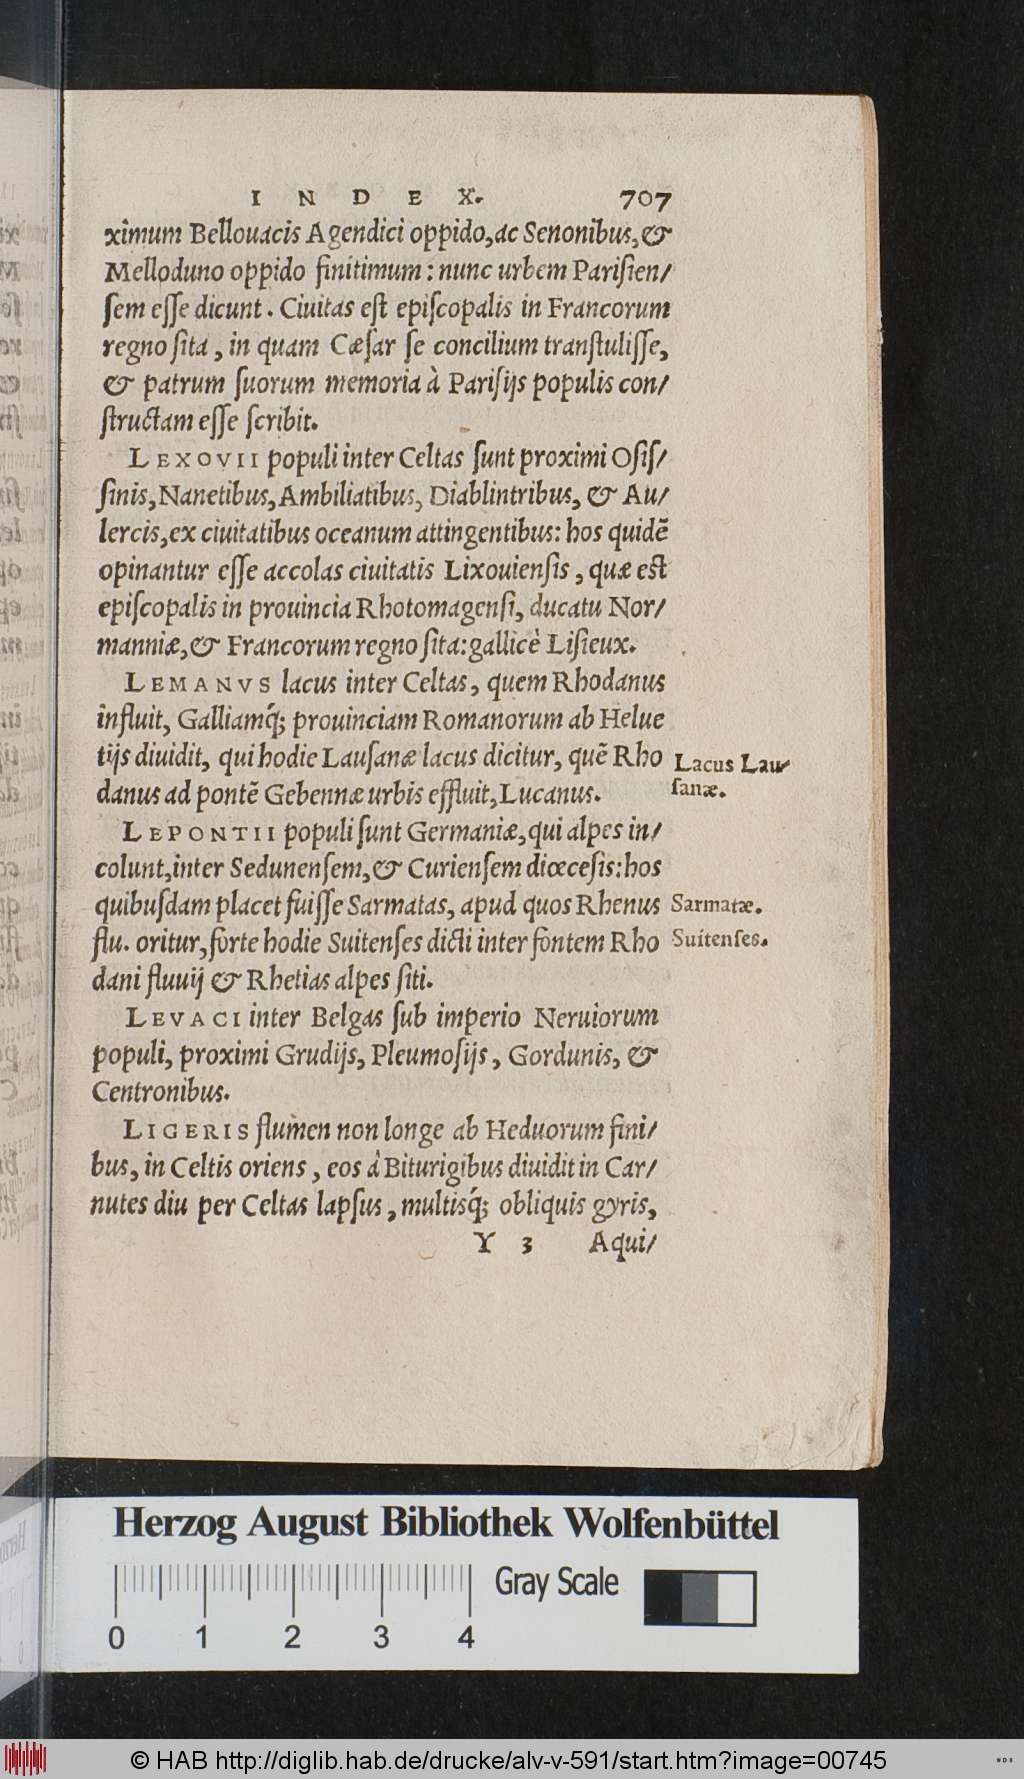 INDEX. 707
ximum Bellouacis Agendici oppido, ac Senonibus, &
Melloduno oppido finitimum: nunc urbem Parisien/
sem esse dicunt. Ciuitas est episcopalis in Francorum
regno sita, in quam Cæsar se concilium transtulisse,
& patrum suorum memoria à Parisijs populis con/
structam esse scribit.
LEXOVII populi inter Celtas sunt proximi Osis/
sinis, Nanetibus, Ambiliatibus, Diablintribus, & Au/
lercis, ex ciuitatibus oceanum attingentibus: hos quidẽ
opinantur esse accolas ciuitatis Lixouiensis, quæ est
episcopalis in prouincia Rhotomagensi, ducatu Nor/
manniæ, & Francorum regno sita: gallicè Lisieux.
LEMANVS lacus inter Celtas, quem Rhodanus
influit, Galliamq́; prouinciam Romanorum ab Helue
tijs diuidit, qui hodie Lausanæ lacus dicitur, quẽ Rho
danus ad pontẽ Gebennæ urbis effluit, Lucanus.
Lacus Lau/
sanæ.
LEPONTII populi sunt Germaniæ, qui alpes in/
colunt, inter Sedunensem, & Curiensem diœcesis: hos
quibusdam placet fuisse Sarmatas, apud quos Rhenus
Sarmatæ.
flu. oritur, forte hodie Suitenses dicti inter fontem Rho
Suitenses.
dani fluuij & Rhetias alpes siti.
LEVACI inter Belgas sub imperio Neruiorum
populi, proximi Grudijs, Pleumosijs, Gordunis, &
Centronibus.
LIGERIS flumen non longe ab Heduorum fini/
bus, in Celtis oriens, eos à Biturigibus diuidit in Car/
nutes diu per Celtas lapsus, multisq́; obliquis gyris,
Y 3 Aqui/
Herzog August Bibliothek Wolfenbüttel
Gray Scale
0 1 2 3 4
© HAB http://diglib.hab.de/drucke/alv-v-591/start.htm?image=00745